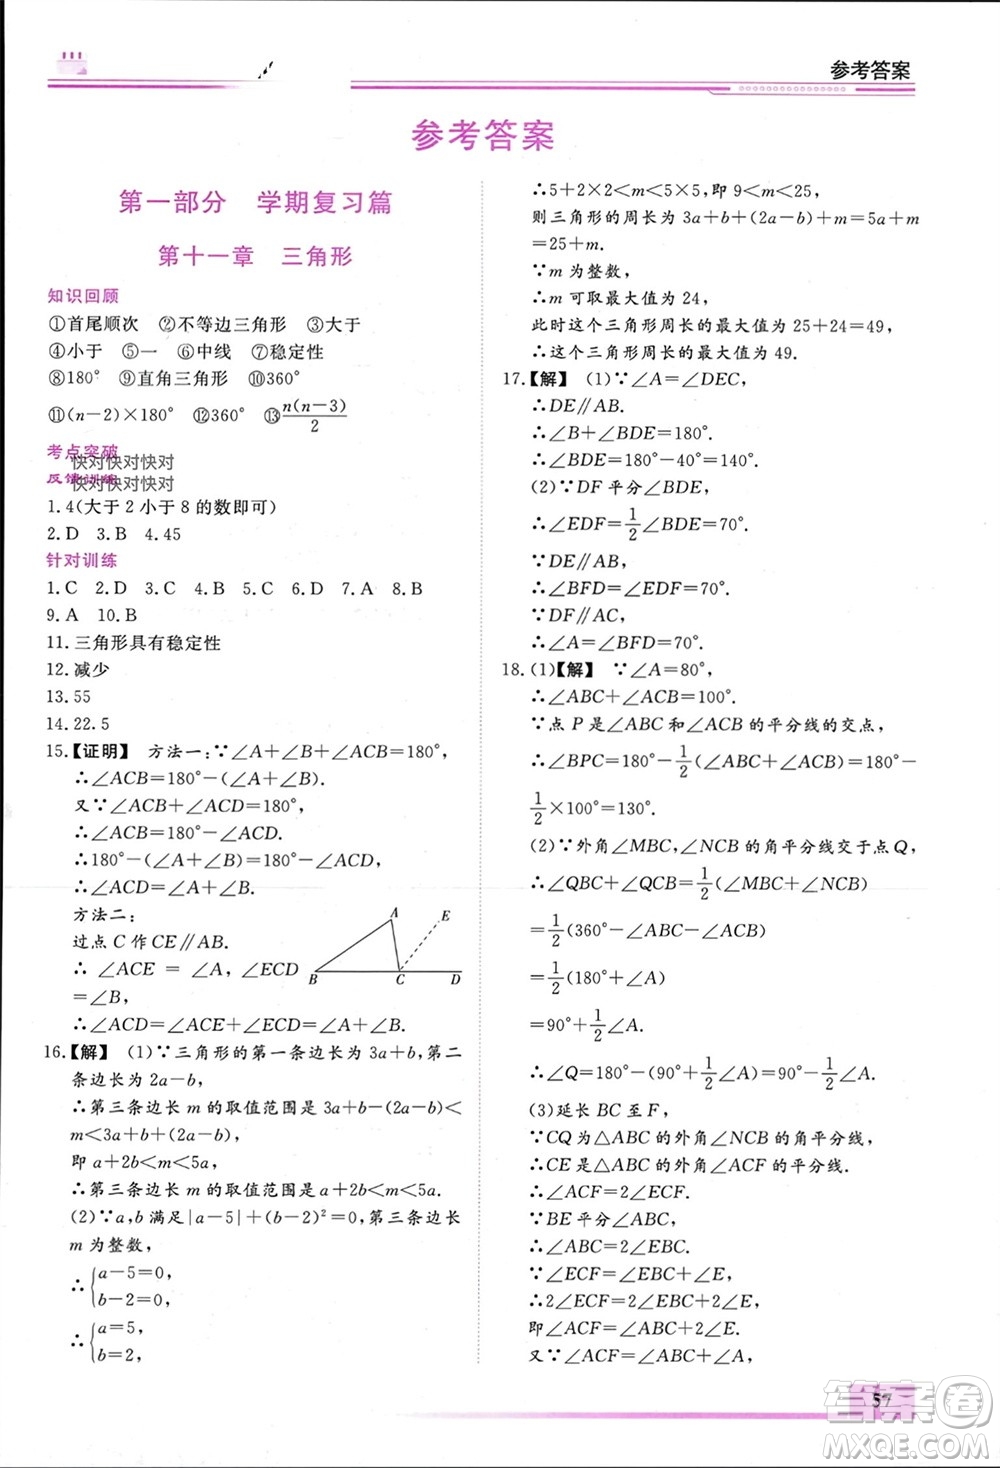 参考答案
参考答案
第一部分 学期复习篇
第十一章 三角形
知识回顾
①首尾顺次 ②不等边三角形 ③大于
④小于 ⑤一 ⑥中线 ⑦稳定性
⑧180° ⑨直角三角形 ⑩360°
⑪(n-2)×180° ⑫360° ⑬n(n-3)/2
考点突破
快对快对快对
反馈训练
快对快对快对
1.4(大于2小于8的数即可)
2.D 3.B 4.45
针对训练
1.C 2.D 3.C 4.B 5.D 6.D 7.C 8.B
9.A 10.B
11.三角形具有稳定性
12.减少
13.55
14.22.5
15.【证明】 方法一:∵∠A+∠B+∠ACB=180°,
∴∠ACB=180°-(∠A+∠B).
又∵∠ACB+∠ACD=180°,
∴∠ACB=180°-∠ACD.
∴180°-(∠A+∠B)=180°-∠ACD.
∴∠ACD=∠A+∠B.
方法二:
过点C作CE∥AB.
∴∠ACE=∠A,∠ECD
=∠B,
∴∠ACD=∠ACE+∠ECD=∠A+∠B.
A E
B C D
16.【解】 (1)∵三角形的第一条边长为3a+b,第二
条边长为2a-b,
∴第三条边长m的取值范围是3a+b-(2a-b)<
m<3a+b+(2a-b),
即a+2b<m<5a,
∴第三条边长m的取值范围是a+2b<m<5a.
(2)∵a,b满足|a-5|+(b-2)²=0,第三条边长
m为整数,
∴{a-5=0,
b-2=0,
∴{a=5,
b=2,
∴5+2×2<m<5×5,即9<m<25,
则三角形的周长为3a+b+(2a-b)+m=5a+m
=25+m.
∵m为整数,
∴m可取最大值为24,
此时这个三角形周长的最大值为25+24=49,
∴这个三角形周长的最大值为49.
17.【解】 (1)∵∠A=∠DEC,
∴DE∥AB.
∴∠B+∠BDE=180°.
∴∠BDE=180°-40°=140°.
(2)∵DF平分∠BDE,
∴∠EDF=1/2∠BDE=70°.
∵DE∥AB,
∴∠BFD=∠EDF=70°.
∵DF∥AC,
∴∠A=∠BFD=70°.
18.(1)【解】 ∵∠A=80°,
∴∠ABC+∠ACB=100°.
∵点P是∠ABC和∠ACB的平分线的交点,
∴∠BPC=180°-1/2(∠ABC+∠ACB)=180°-
1/2×100°=130°.
(2)∵外角∠MBC,∠NCB的角平分线交于点Q,
∴∠QBC+∠QCB=1/2(∠MBC+∠NCB)
=1/2(360°-∠ABC-∠ACB)
=1/2(180°+∠A)
=90°+1/2∠A.
∴∠Q=180°-(90°+1/2∠A)=90°-1/2∠A.
(3)延长BC至F,
∵CQ为△ABC的外角∠NCB的角平分线,
∴CE是△ABC的外角∠ACF的平分线.
∴∠ACF=2∠ECF.
∵BE平分∠ABC,
∴∠ABC=2∠EBC.
∵∠ECF=∠EBC+∠E,
∴2∠ECF=2∠EBC+2∠E,
即∠ACF=∠ABC+2∠E.
又∵∠ACF=∠ABC+∠A,
57
答案卷
MXQE.COM